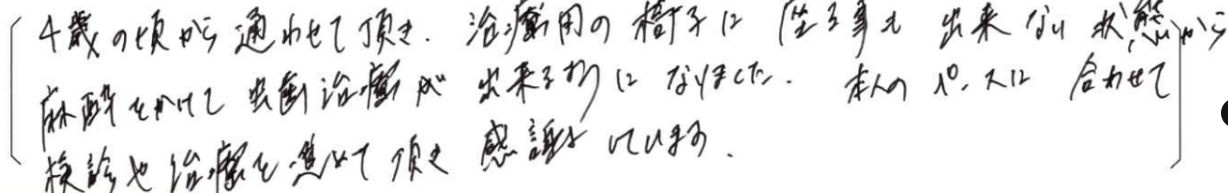 4歳の頃から通わせて頂き、治療用の椅子に座る事も出来ない状態から
麻酔をかけて虫歯治療が出来る様になりました。本人のペースに合わせて
検診や治療を進めて頂き感謝しています。